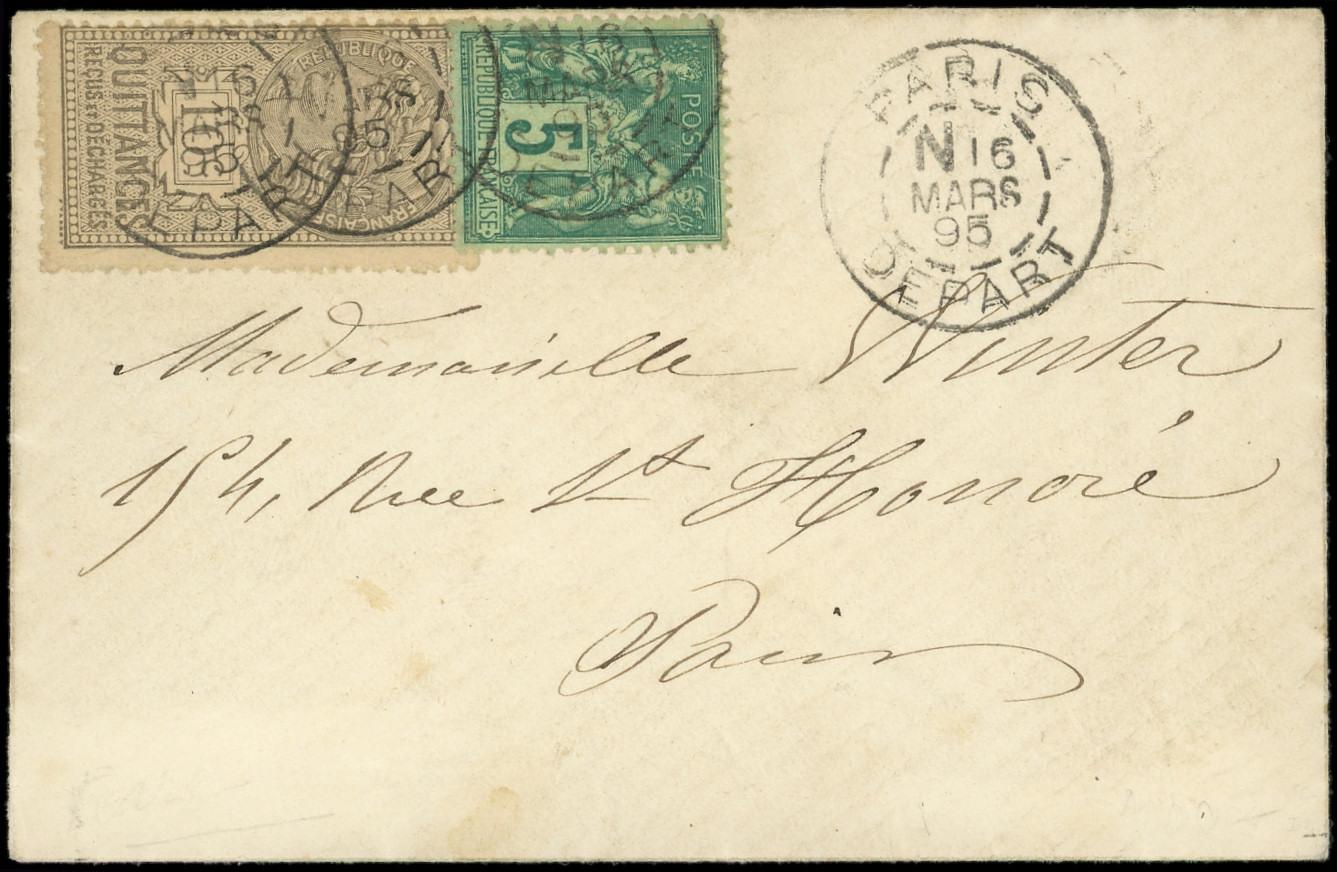 QUITTANCES
REÇUS ET DÉCHARGES
10c
RÉPUBLIQUE
FRANÇAISE
MARS
95
DEPART
POSTE
5
RÉPUBLIQUE FRANÇAISE
N 16
MARS
DEPART
PARIS
N 16
MARS
95
DEPART
Mademoiselle Winter
154, Rue St Honoré
Paris